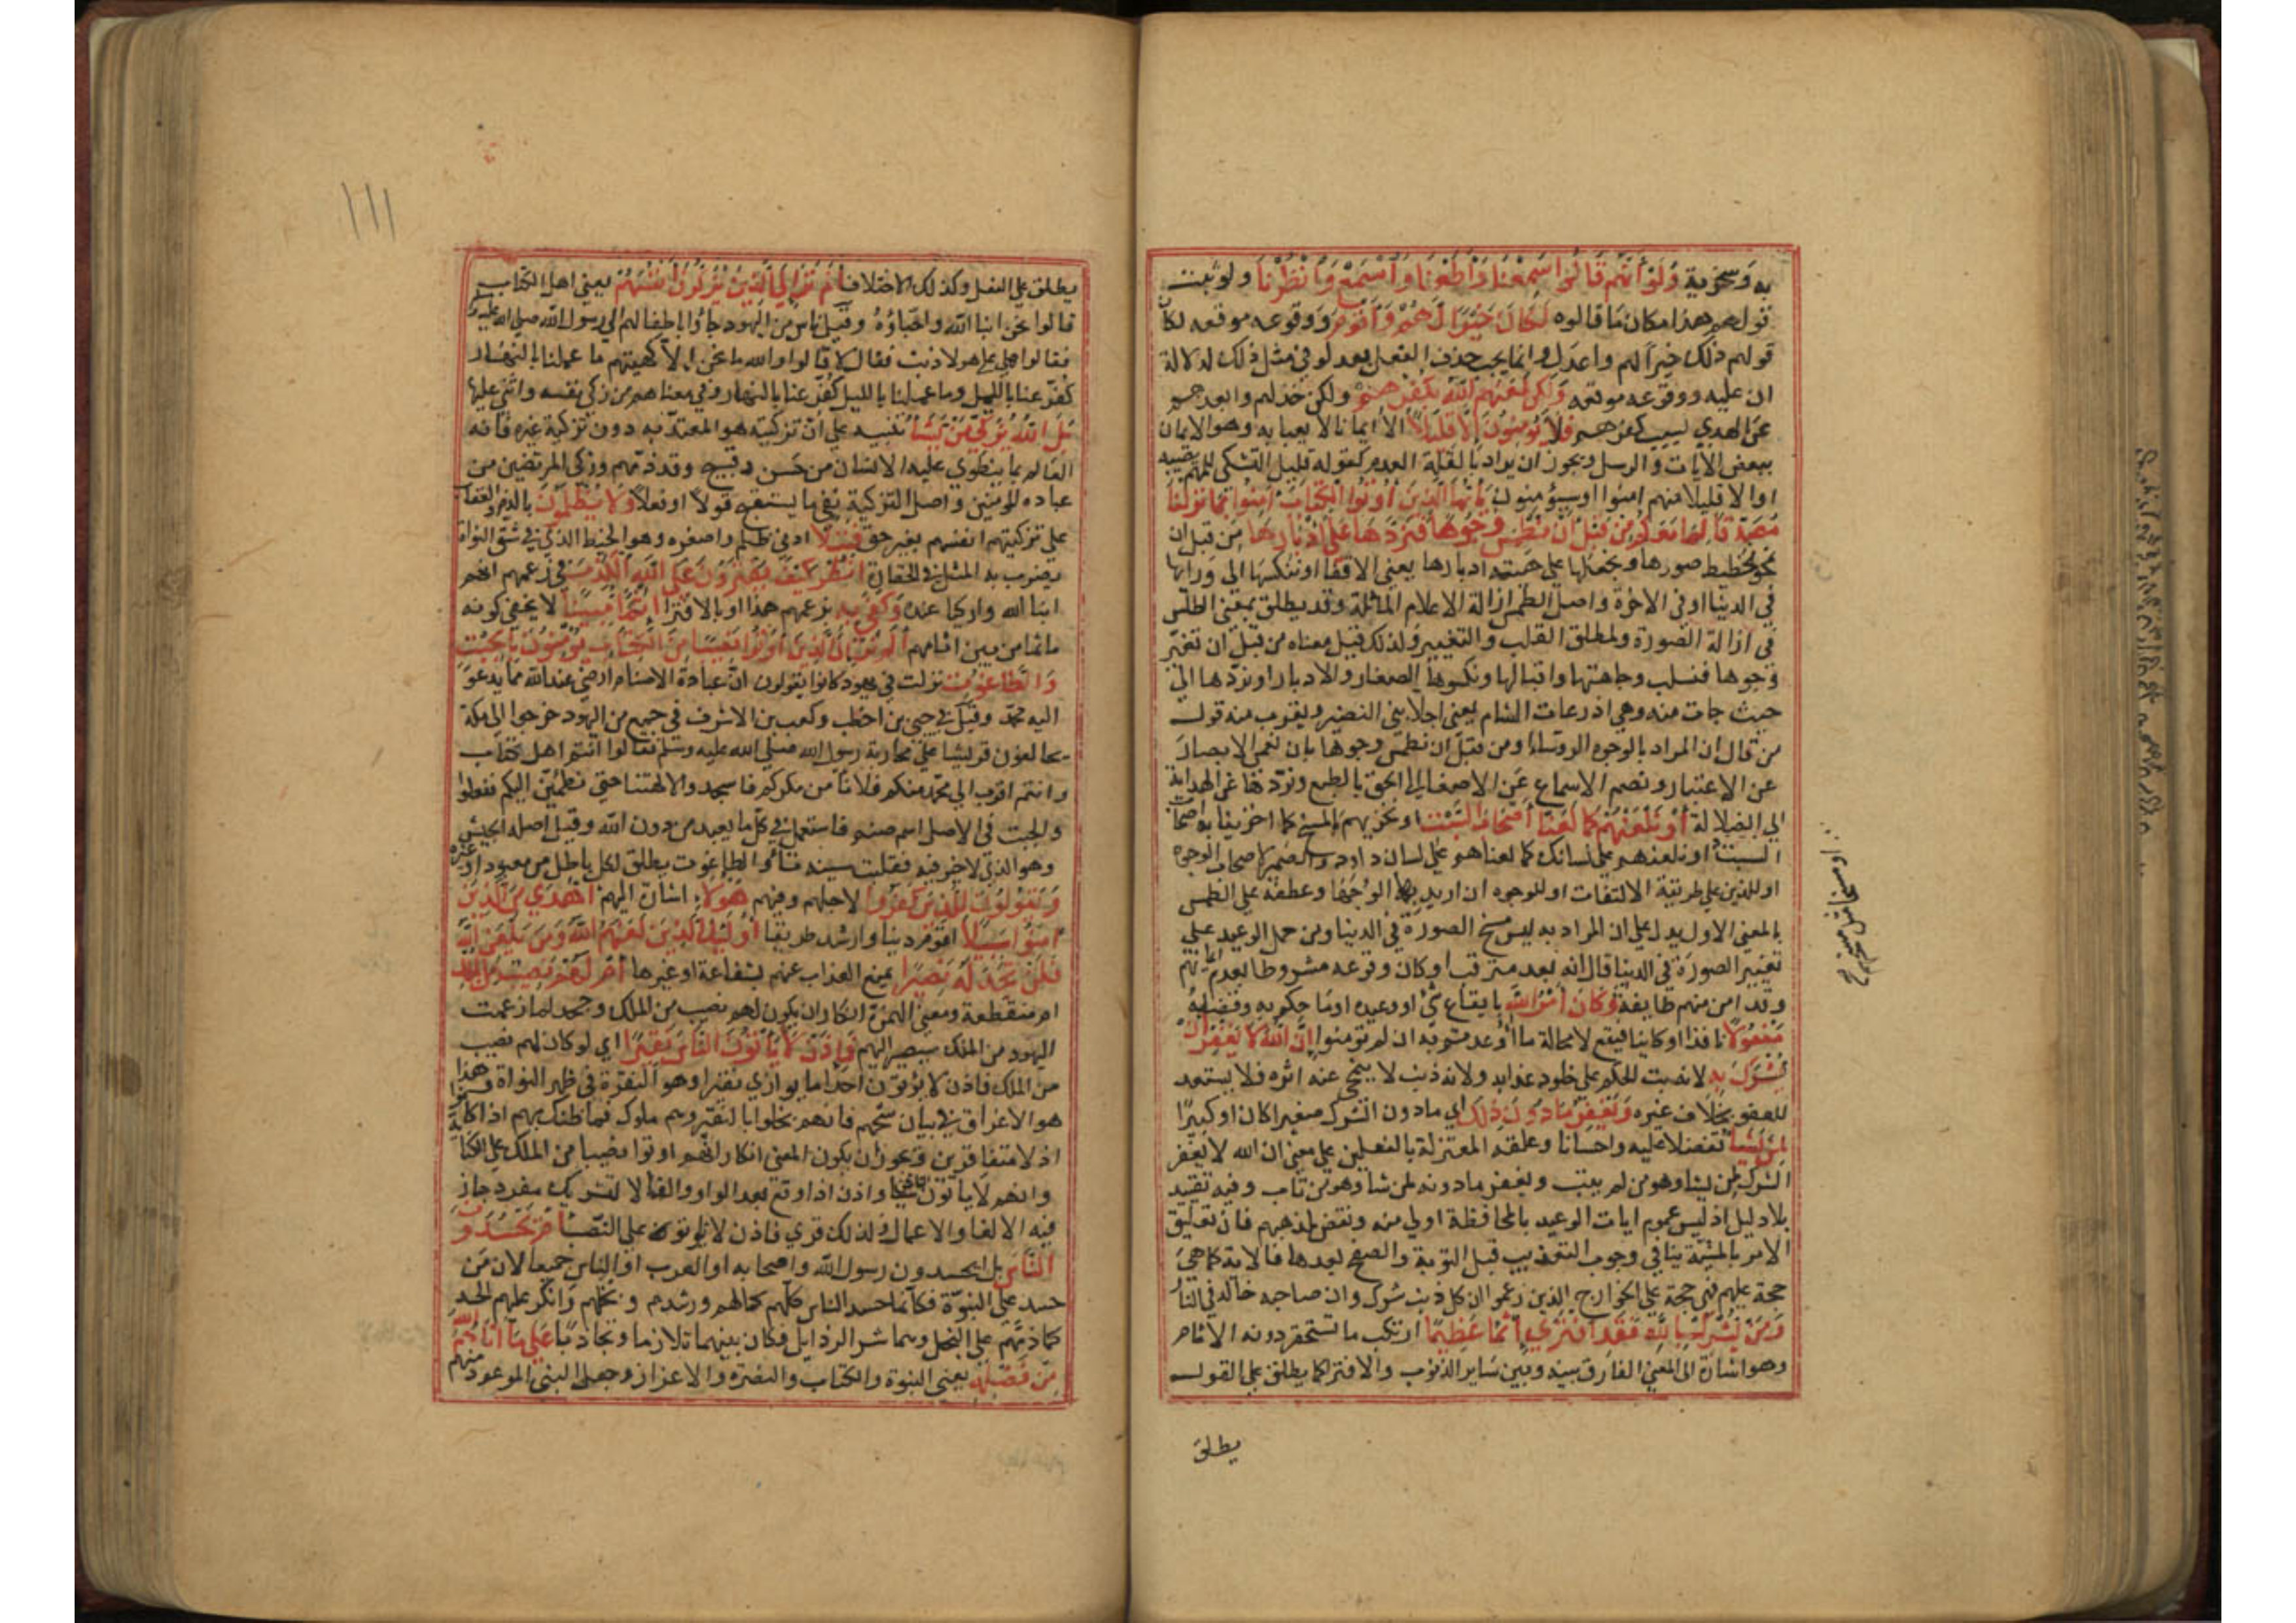 به وسخرية وَلَوْ أَنَّهُمْ قَالُوا سَمِعْنَا وَأَطَعْنَا وَاسْمَعْ وَانْظُرْنَا ولو ثبت
قولهم هذا مكان ما قالوه لَكَانَ خَيْرًا لَهُمْ وَأَقْوَمَ ووقوعه موقعه لكان
قولهم ذلك خيرا لهم واعدل وانما يجب حذف الفعل بعد لو في مثل ذلك لدلالة
ان عليه ووقوعه موقعه وَلَكِنْ لَعَنَهُمُ اللَّهُ بِكُفْرِهِمْ ولكن خذلهم وابعدهم
عن الهدي بسبب كفرهم فَلَا يُؤْمِنُونَ إِلَّا قَلِيلًا الا ايمانا لا يعبا به وهو الايمان
ببعض الآيات والرسل ويجوز ان يراد بالقلة العدم كقوله قليل التشكي للمهم يصيبه
اوالا قليلا منهم امنوا اوسيؤمنون يَا أَيُّهَا الَّذِينَ أُوتُوا الْكِتَابَ آمِنُوا بِمَا نَزَّلْنَا
مُصَدِّقًا لِمَا مَعَكُمْ مِنْ قَبْلِ أَنْ نَطْمِسَ وُجُوهًا فَنَرُدَّهَا عَلَى أَدْبَارِهَا من قبل ان
نمحو تخطيط صورها ونجعلها على هيئة ادبارها يعني الاقفا او ننكسها الى ورايها
في الدنيا اوفي الاخرة واصل الطمس ازالة الاعلام الماثلة وقد يطلق بمعنى الطلس
في ازالة الصورة ولمطلق القلب والتغيير ولذلك قيل معناه من قبل ان نغير
وجوها فنسلب وجاهتها واقبالها ونكسوها الصغار والادبار اونردها الى
حيث جات منه وهي اذرعات الشام يعني اجلا بني النضير ويقرب منه قول
من قال ان المراد بالوجوه الروساء اومن قبل ان نطمس وجوها بان نعمي الابصار
عن الاعتبار ونصم الاسماع عن الاصغا الى الحق بالطبع ونردها عن الهداية
الى الضلالة أَوْ نَلْعَنَهُمْ كَمَا لَعَنَّا أَصْحَابَ السَّبْتِ اونخزيهم بالمسخ كما اخزينا به اصحاب
السبت اونلعنهم على لسانك كما لعناهم على لسان داود والضمير لاصحاب الوجوه
اوللذين على طريقة الالتفات اوللوجوه ان اريد بها الوجها وعطفه على الطمس
بالمعنى الاول يدل على ان المراد به ليس مسخ الصورة في الدنيا ومن حمل الوعيد على
تغيير الصورة في الدنيا قال انه بعد مترقب اوكان وقوعه مشروطا بعدم ايمانهم
وقد امن منهم طايفة وَكَانَ أَمْرُ اللَّهِ بايقاع شئ اووعيده اوما حكم به وقضاه
مَفْعُولًا نافذا اوكاينا فيقع لا محالة ما اوعدتم به ان لم تؤمنوا إِنَّ اللَّهَ لَا يَغْفِرُ أَنْ
يُشْرَكَ بِهِ لانه بت الحكم على خلود عذابه ولانه ذنب لا ينمحي عنه اثره فلا يستعد
للعفو بخلاف غيره وَيَغْفِرُ مَا دُونَ ذَلِكَ اي ما دون الشرك صغيرا كان اوكبيرا
لِمَنْ يَشَاءُ تفضلا عليه واحسانا وعلقه المعتزلة بالفعلين على معنى ان الله لا يغفر
الشرك لمن يشاء وهو من لم يتب ويغفر ما دونه لمن شا وهو من تاب وفيه تقييد
بلا دليل اذ ليس عموم ايات الوعيد بالمحافظة اولى منه ونقض لمذهبهم فان تعليق
الامر بالمشية ينافي وجوب التعذيب قبل التوبة والصفح بعدها فالاية كما هي
حجة عليهم فهي حجة على الخوارج الذين زعموا ان كل ذنب شرك وان صاحبه خالد في النار
وَمَنْ يُشْرِكْ بِاللَّهِ فَقَدِ افْتَرَى إِثْمًا عَظِيمًا ارتكب ما تستحقر دونه الاثام
وهو اشارة الى المعنى الفارق بينه وبين ساير الذنوب والافترا كما يطلق على القول
يطلق
١١١
يطلق على الفعل وكذلك الاختلاف أَلَمْ تَرَ إِلَى الَّذِينَ يُزَكُّونَ أَنْفُسَهُمْ يعني اهل الكتاب
قالوا نحن ابنا الله واحباؤه وقيل ناس من اليهود جاؤا باطفالهم الى رسول الله صلى الله عليه وسلم
فقالوا هل على هولا ذنب فقال لا قالوا والله ما نحن الا كهيئتهم ما عملنا بالنهار
كفر عنا بالليل وما عملنا بالليل كفر عنا بالنهار وفي معناهم من زكى نفسه واثنى عليها
بَلِ اللَّهُ يُزَكِّي مَنْ يَشَاءُ تنبيه على ان تزكيته هو المعتد به دون تزكية غيره فانه
العالم بما ينطوي عليه الانسان من حسن وقبيح وقد ذمهم وزكى المرتضين من
عباده المومنين واصل التزكية نفي ما يستقبح قولا اوفعلا وَلَا يُظْلَمُونَ بالذم والعقاب
على تزكيتهم انفسهم بغير حق فَتِيلًا ادنى ظلم واصغره وهو الخيط الذي في شق النواة
يضرب به المثل في الحقارة انْظُرْ كَيْفَ يَفْتَرُونَ عَلَى اللَّهِ الْكَذِبَ في زعمهم انهم
ابنا الله وازكيا عنده وَكَفَى بِهِ بزعمهم هذا اوبالافترا إِثْمًا مُبِينًا لا يخفى كونه
ماثما من بين اثامهم أَلَمْ تَرَ إِلَى الَّذِينَ أُوتُوا نَصِيبًا مِنَ الْكِتَابِ يُؤْمِنُونَ بِالْجِبْتِ
وَالطَّاغُوتِ نزلت في يهود كانوا يقولون ان عبادة الاصنام ارضى عند الله مما يدعو
اليه محمد وقيل في حيي بن اخطب وكعب بن الاشرف في جمع من اليهود خرجوا الى مكة
يحالفون قريشا على محاربة رسول الله صلى الله عليه وسلم فقالوا انتم اهل كتاب
وانتم اقرب الى محمد منكم فلا نأمن مكركم فاسجدوا لالهتنا حتى نطمئن اليكم ففعلوا
والجبت في الاصل اسم صنم فاستعمل في كل ما يعبد من دون الله وقيل اصله الجبس
وهو الذي لا خير فيه فقلبت سينه تاء والطاغوت يطلق لكل باطل من معبود اوغيره
وَيَقُولُونَ لِلَّذِينَ كَفَرُوا لاجلهم وفيهم هَؤُلَاءِ اشارة اليهم أَهْدَى مِنَ الَّذِينَ
آمَنُوا سَبِيلًا اقوم دينا وارشد طريقا أُولَئِكَ الَّذِينَ لَعَنَهُمُ اللَّهُ وَمَنْ يَلْعَنِ اللَّهُ
فَلَنْ تَجِدَ لَهُ نَصِيرًا يمنع العذاب عنهم بشفاعة اوغيرها أَمْ لَهُمْ نَصِيبٌ مِنَ الْمُلْكِ
ام منقطعة ومعنى الهمزة انكار ان يكون لهم نصيب من الملك وجحد لما زعمت
اليهود من الملك سيصير اليهم فَإِذَنْ لَا يُؤْتُونَ النَّاسَ نَقِيرًا اي لو كان لهم نصيب
من الملك فاذن لا يؤتون احدا ما يوازي نقيرا وهو النقرة في ظهر النواة هذا
هو الاغراق في بيان شحهم فانهم بخلوا بالنقير وهم ملوك فما ظنك بهم اذا كانوا
اذلا متفاقرين ويجوز ان يكون المعنى انكار انهم اوتوا نصيبا من الملك على الكناية
وانهم لا ياتون شيئا واذن اذا وقع بعد الواو والفا لا لتشريك مفرد جاز
فيه الالغا والاعمال ولذلك قري فاذن لا يؤتوا على النصب أَمْ يَحْسُدُونَ
النَّاسَ بل ايحسدون رسول الله واصحابه او العرب او الناس جميعا لان من
حسد على النبوة فكانما حسد الناس كلهم كمالهم ورشدهم وبخلهم وانكر عليهم الحسد
كما ذمهم على البخل وهما شر الرذايل فكان بينهما تلازما وتجاذبا عَلَى مَا آتَاهُمُ اللَّهُ
مِنْ فَضْلِهِ يعني النبوة والكتاب والنصرة والاعزاز وجعل النبي الموعود منهم